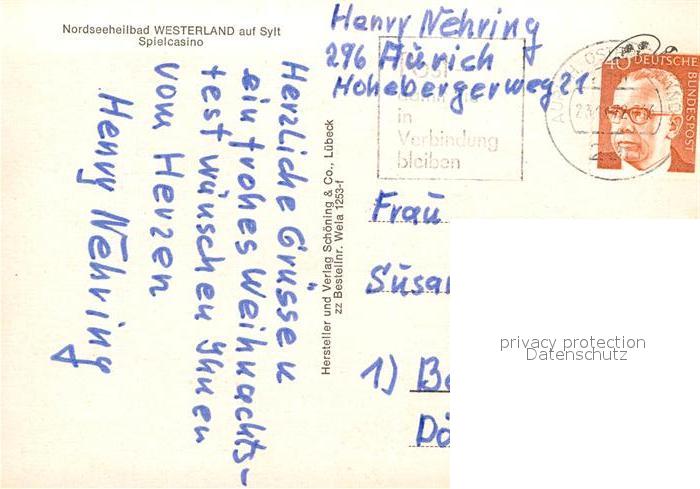 Nordseeheilbad WESTERLAND auf Sylt
Spielcasino
Henry Nehring
296 Aurich
Hohebergerweg 21
Herzliche Grüsse u
ein frohes Weihnachts-
fest wünschen Ihnen
vom Herzen
Henry Nehring
Hersteller und Verlag Schöning & Co., Lübeck
zz Bestellnr. Wela 1253-f
in
Verbindung
bleiben
40 DEUTSCHE
BUNDESPOST
Frau
Susan
1) Be
Dö
privacy protection
Datenschutz